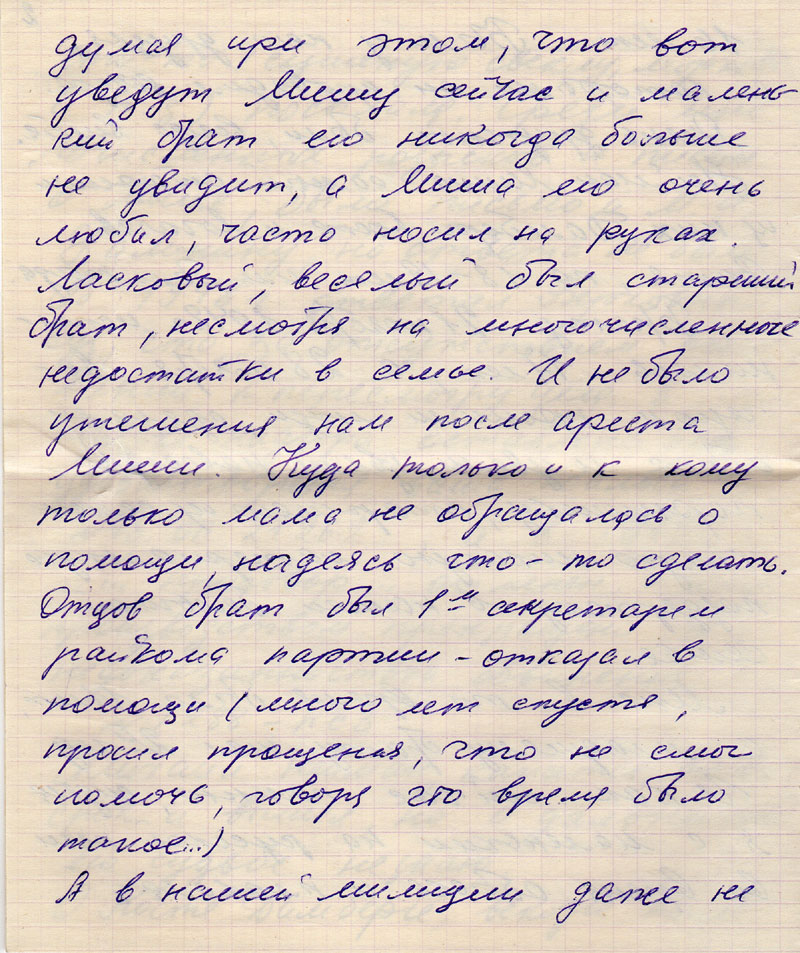 думая при этом, что вот
уведут Мишу сейчас и малень-
кий брат его никогда больше
не увидит, а Миша его очень
любил, часто носил на руках.
Ласковый, веселый был старший
брат, несмотря на многочисленные
недостатки в семье. И не было
утешения нам после ареста
Миши. Куда только и к кому
только мама не обращалась о
помощи, надеясь что-то сделать.
Отцов брат был 1м секретарем
райкома партии - отказал в
помощи (много лет спустя,
просил прощения, что не смог
помочь, говоря что время было
такое...)
А в нашей милиции даже не